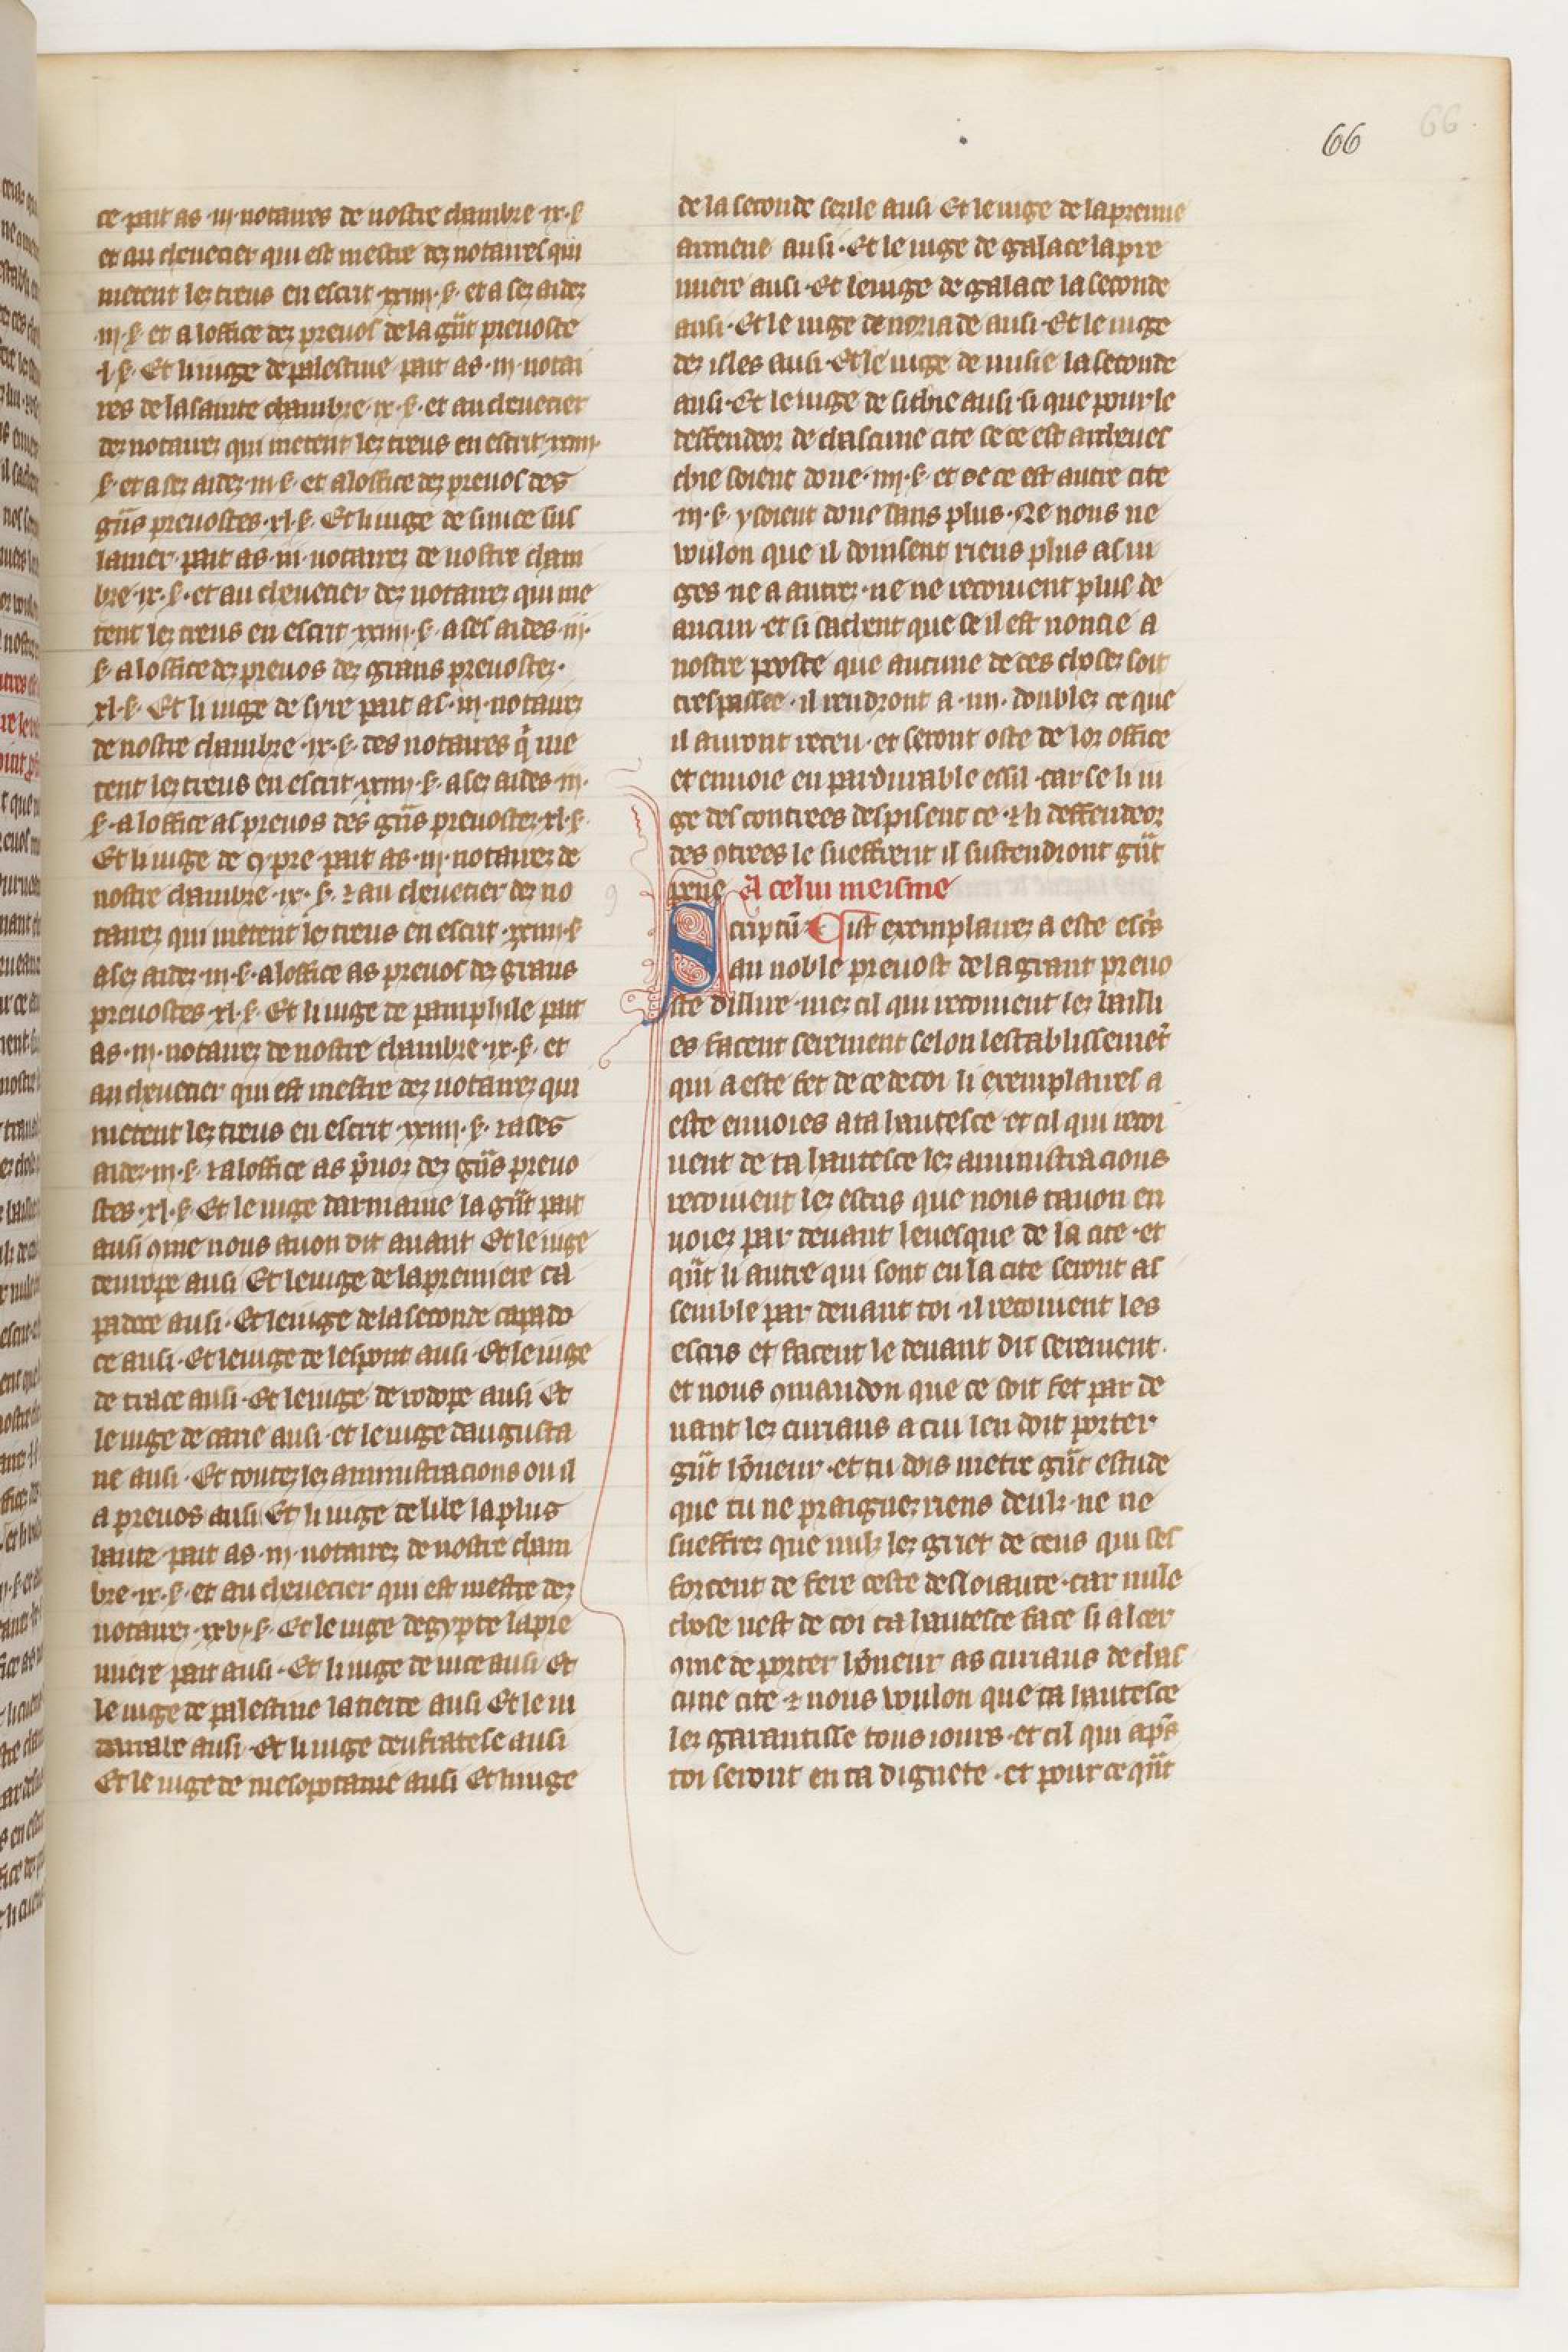 66
66
ce pait as .iii. notaires de nostre chambre .ix. ß
et au cheuecier qui est mestre dez notaires qui
metent lez treus en escrit .xxiiii. ß. et a sez aidez
.iii. ß et a loffice dez preuos de la gnt preuoste
.l. ß. Et li iuge de palestine pait as .iii. notai
res de la sainte chambre .ix. ß. et au cheuecier
dez notairez qui metent lez treus en escrit .xxiiii.
ß. et a sez aidez .iii. ß. et a loffice dez preuos des
gns preuostes .xl. ß. Et li iuge de
lainer pait as .iii. notairez de nostre cham
bre .ix. ß. et au cheuecier dez notairez qui me
tent lez treus en escrit .xxiiii. ß. a ses aides .iii.
ß. a loffice dez preuos dez grans preuostez.
.xl. ß. Et li iuge de syre pait as .iii. notairez
de nostre chambre .ix. ß. des notaires q me
tent lez treus en escrit .xxiiii. ß. a sez aides .iii.
ß. a loffice as preuos des gns preuostez .xl. ß.
Et li iuge de cypre pait as .iii. notairez de
nostre chambre .ix. ß. ⁊ au cheuecier dez no
tairez qui metent lez treus en escrit .xxiiii. ß
a sez aidez .iii. ß. a loffice as preuos dez grans
preuostes .xl. ß. Et li iuge de pamphile pait
as .iii. notairez de nostre chambre .ix. ß. et
au cheuecier qui est mestre dez notairez qui
metent lez treus en escrit .xxiiii. ß. ⁊ a ses
aidez .iii. ß. ⁊ a loffice as puoz dez gns preuo
stes .xl. ß. Et le iuge darmanie la gnt pait
ausi ꝯme nous auon dit auant Et le iuge
deurope ausi Et le iuge de la premiere ca
padoce ausi. Et le iuge de la seconde capado
ce ausi. Et le iuge de lespont ausi. Et le iuge
de trace ausi. Et le iuge de rodope ausi Et
le iuge de carie ausi. et le iuge daugusta
ne ausi. Et toutez lez aministracions ou il
a preuos ausi Et li iuge de libe la plus
haute pait as .iii. notairez de nostre cham
bre .ix. ß. et au cheuecier qui est mestre dez
notairez .xxvi. ß. Et le iuge degypte la pre
miere pait ausi. Et li iuge de nice ausi Et
le iuge de palestine la tierce ausi Et le iu
darrabe ausi. Et li iuge deufratese ausi
Et le iuge de mesopotamie ausi Et li iuge
de la seconde sezile ausi Et le iuge de la premie
armenie ausi. Et le iuge de galace la pre
miere ausi. Et le iuge de galace la seconde
ausi. Et le iuge de noriade ausi. Et le iuge
dez isles ausi. Et le iuge de misie la seconde
ausi. Et le iuge de sithie ausi. si que pour le
deffendeor de chascune cite se ce est archeues
chie soient done .iiii. ß. et se ce est autre cite
.iii. ß. y soient done sans plus. Ne nous ne
voulon que il doinsent riens plus as iu
ges ne a autrez. ne ne recoiuent plus de
aucun. et si sachent que se il est noncie a
nostre poste que aucune de ces chosez soit
trespassee. il rendront a .iiii. doublez ce que
il auront receu. et seront oste de lor office
et enuoie en pardurable essil. car se li iu
ge des contrees despisent ce. ⁊ li deffendeor
des ꝯtrees le sueffrent il sustendront gnt
peine A celui meisme
Scriptu Cist exemplairez a este escs
au noble preuost de la grant preuo
ste dillire. mez cil qui recoiuent lez bailli
es facent serement selon lestablissemet
qui a este fet de ce de coi li exemplaires a
este enuoies a ta hautesce. et cil qui recoi
uent de ta hautesce lez aministracions
recoiuent lez escris que nous tauon en
uoiez par deuant leuesque de la cite. et
qnt li autre qui sont en la cite seront as
semble par deuant toi. il recoiuent les
escris et facent le deuant dit serement.
et nous ꝯmandon que ce soit fet par de
uant lez curiaus a cui len doit porter
gnt honeur. et tu dois metre gnt estude
que tu ne praignez riens deulz. ne ne
sueffrez que nulz lez griet de ceus qui ses
forcent de fere ceste desloiaute. car nule
chose nest de coi ta hautesce face si a lcer
ꝯme de porter honeur as curiaus de chas
cune cite ⁊ nous voulon que ta hautesce
lez garantisse tous iours. et cil qui aps
toi seront en ta dignete. et pour ce qnt